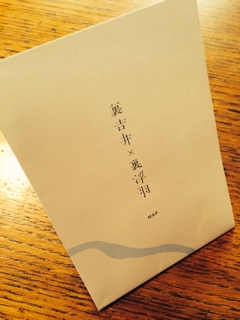 裏吉井×裏浮羽
MAP